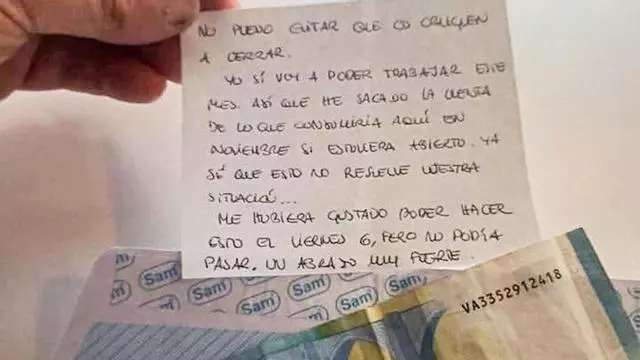 NO PUEDO EVITAR QUE OS OBLIGUEN
A CERRAR.
YO SÍ VOY A PODER TRABAJAR ESTE
MES. ASÍ QUE HE SACADO LA CUENTA
DE LO QUE CONSUMIRÍA AQUÍ EN
NOVIEMBRE SI ESTUVIERA ABIERTO. YA
SÉ QUE ESTO NO RESUELVE VUESTRA
SITUACIÓN...
ME HUBIERA GUSTADO PODER HACER
ESTO EL VIERNES 6, PERO NO PODÍA
PASAR. UN ABRAZO MUY FUERTE.
Sam
Sam
Sam
Sam
Sam
Sam
VA3352912418